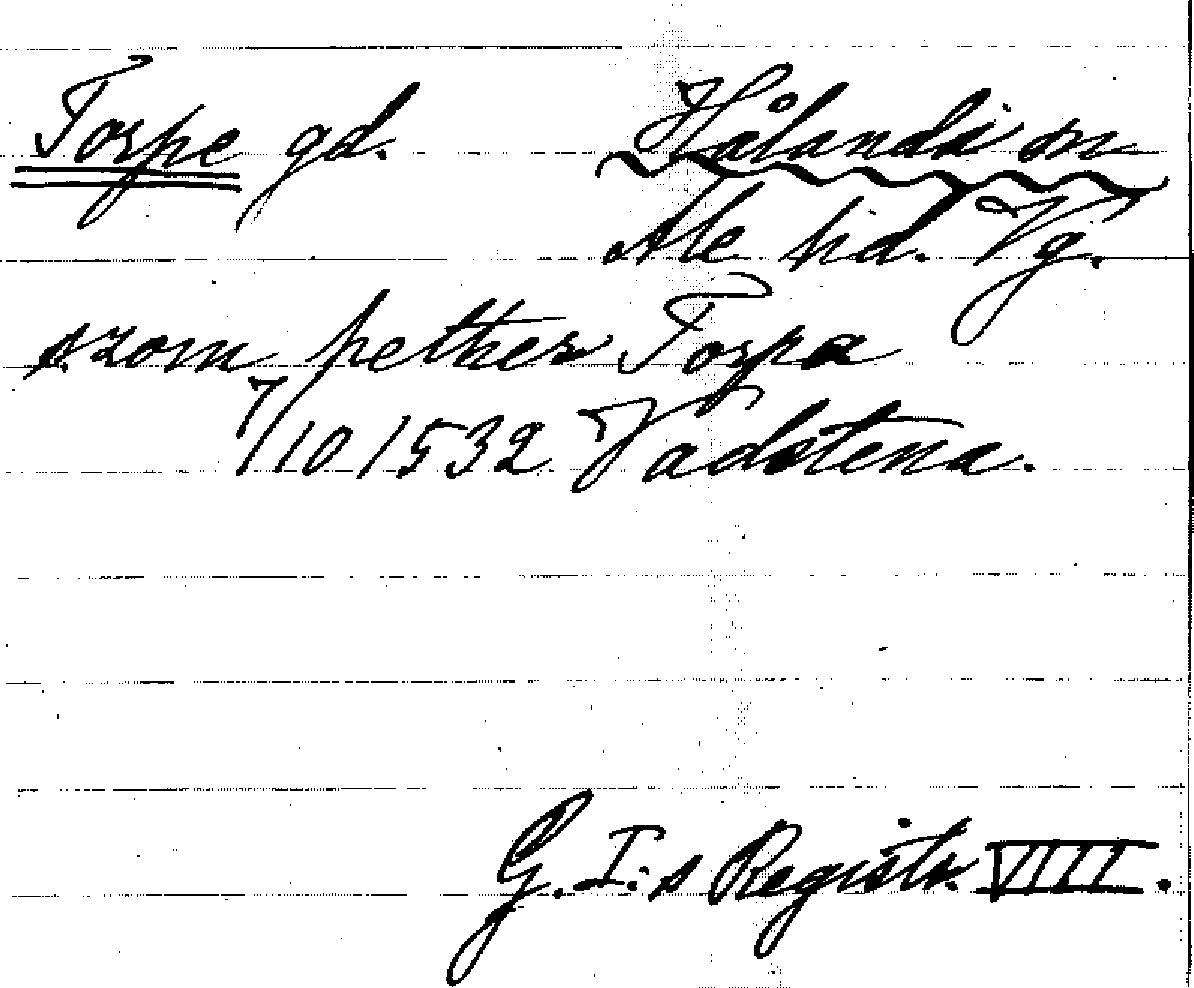 Torpe gd. Hålanda sn
Ale hd. Vg.
szom pether Torpa
7/10 1532 Vadstena.
G. I:s Registr. VIII.